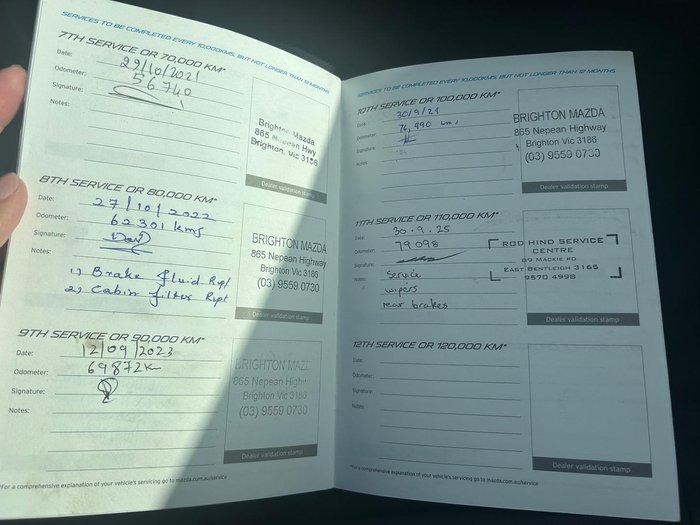 SERVICES TO BE COMPLETED EVERY 10,000KMS, BUT NOT LONGER THAN 12 MONTHS
7TH SERVICE OR 70,000 KM*
Date: 29/10/2021
Odometer: 56740
Signature:
Notes:
Brighton Mazda
865 Nepean Hwy
Brighton, Vic 3186
Dealer validation stamp
8TH SERVICE OR 80,000 KM*
Date: 27/10/2022
Odometer: 62301 kms
Signature:
Notes:
1) Brake fluid Rpl
2) Cabin filter Rplt
BRIGHTON MAZDA
865 Nepean Highway
Brighton Vic 3186
(03) 9559 0730
Dealer validation stamp
9TH SERVICE OR 90,000 KM*
Date: 12/09/2023
Odometer: 69872K
Signature:
Notes:
BRIGHTON MAZ
865 Nepean Highw
Brighton Vic 3186
(03) 9559 0730
Dealer validation stamp
*For a comprehensive explanation of your vehicle's servicing go to mazda.com.au/service
SERVICES TO BE COMPLETED EVERY 10,000KMS, BUT NOT LONGER THAN 12 MONTHS
10TH SERVICE OR 100,000 KM*
Date:
Odometer: 76,990 km,
Signature:
Notes:
BRIGHTON MAZDA
865 Nepean Highway
Brighton Vic 3186
(03) 9559 0730
Dealer validation stamp
11TH SERVICE OR 110,000 KM*
Date: 30.9.25
Odometer: 79098
Signature:
Notes: Service
wipers
rear brakes
ROD HIND SERVICE
CENTRE
89 MACKIE RD
EAST BENTLEIGH 3165
9570 4998
Dealer validation stamp
12TH SERVICE OR 120,000 KM*
Date:
Odometer:
Signature:
Notes:
Dealer validation stamp
*For a comprehensive explanation of your vehicle's servicing go to mazda.com.au/service